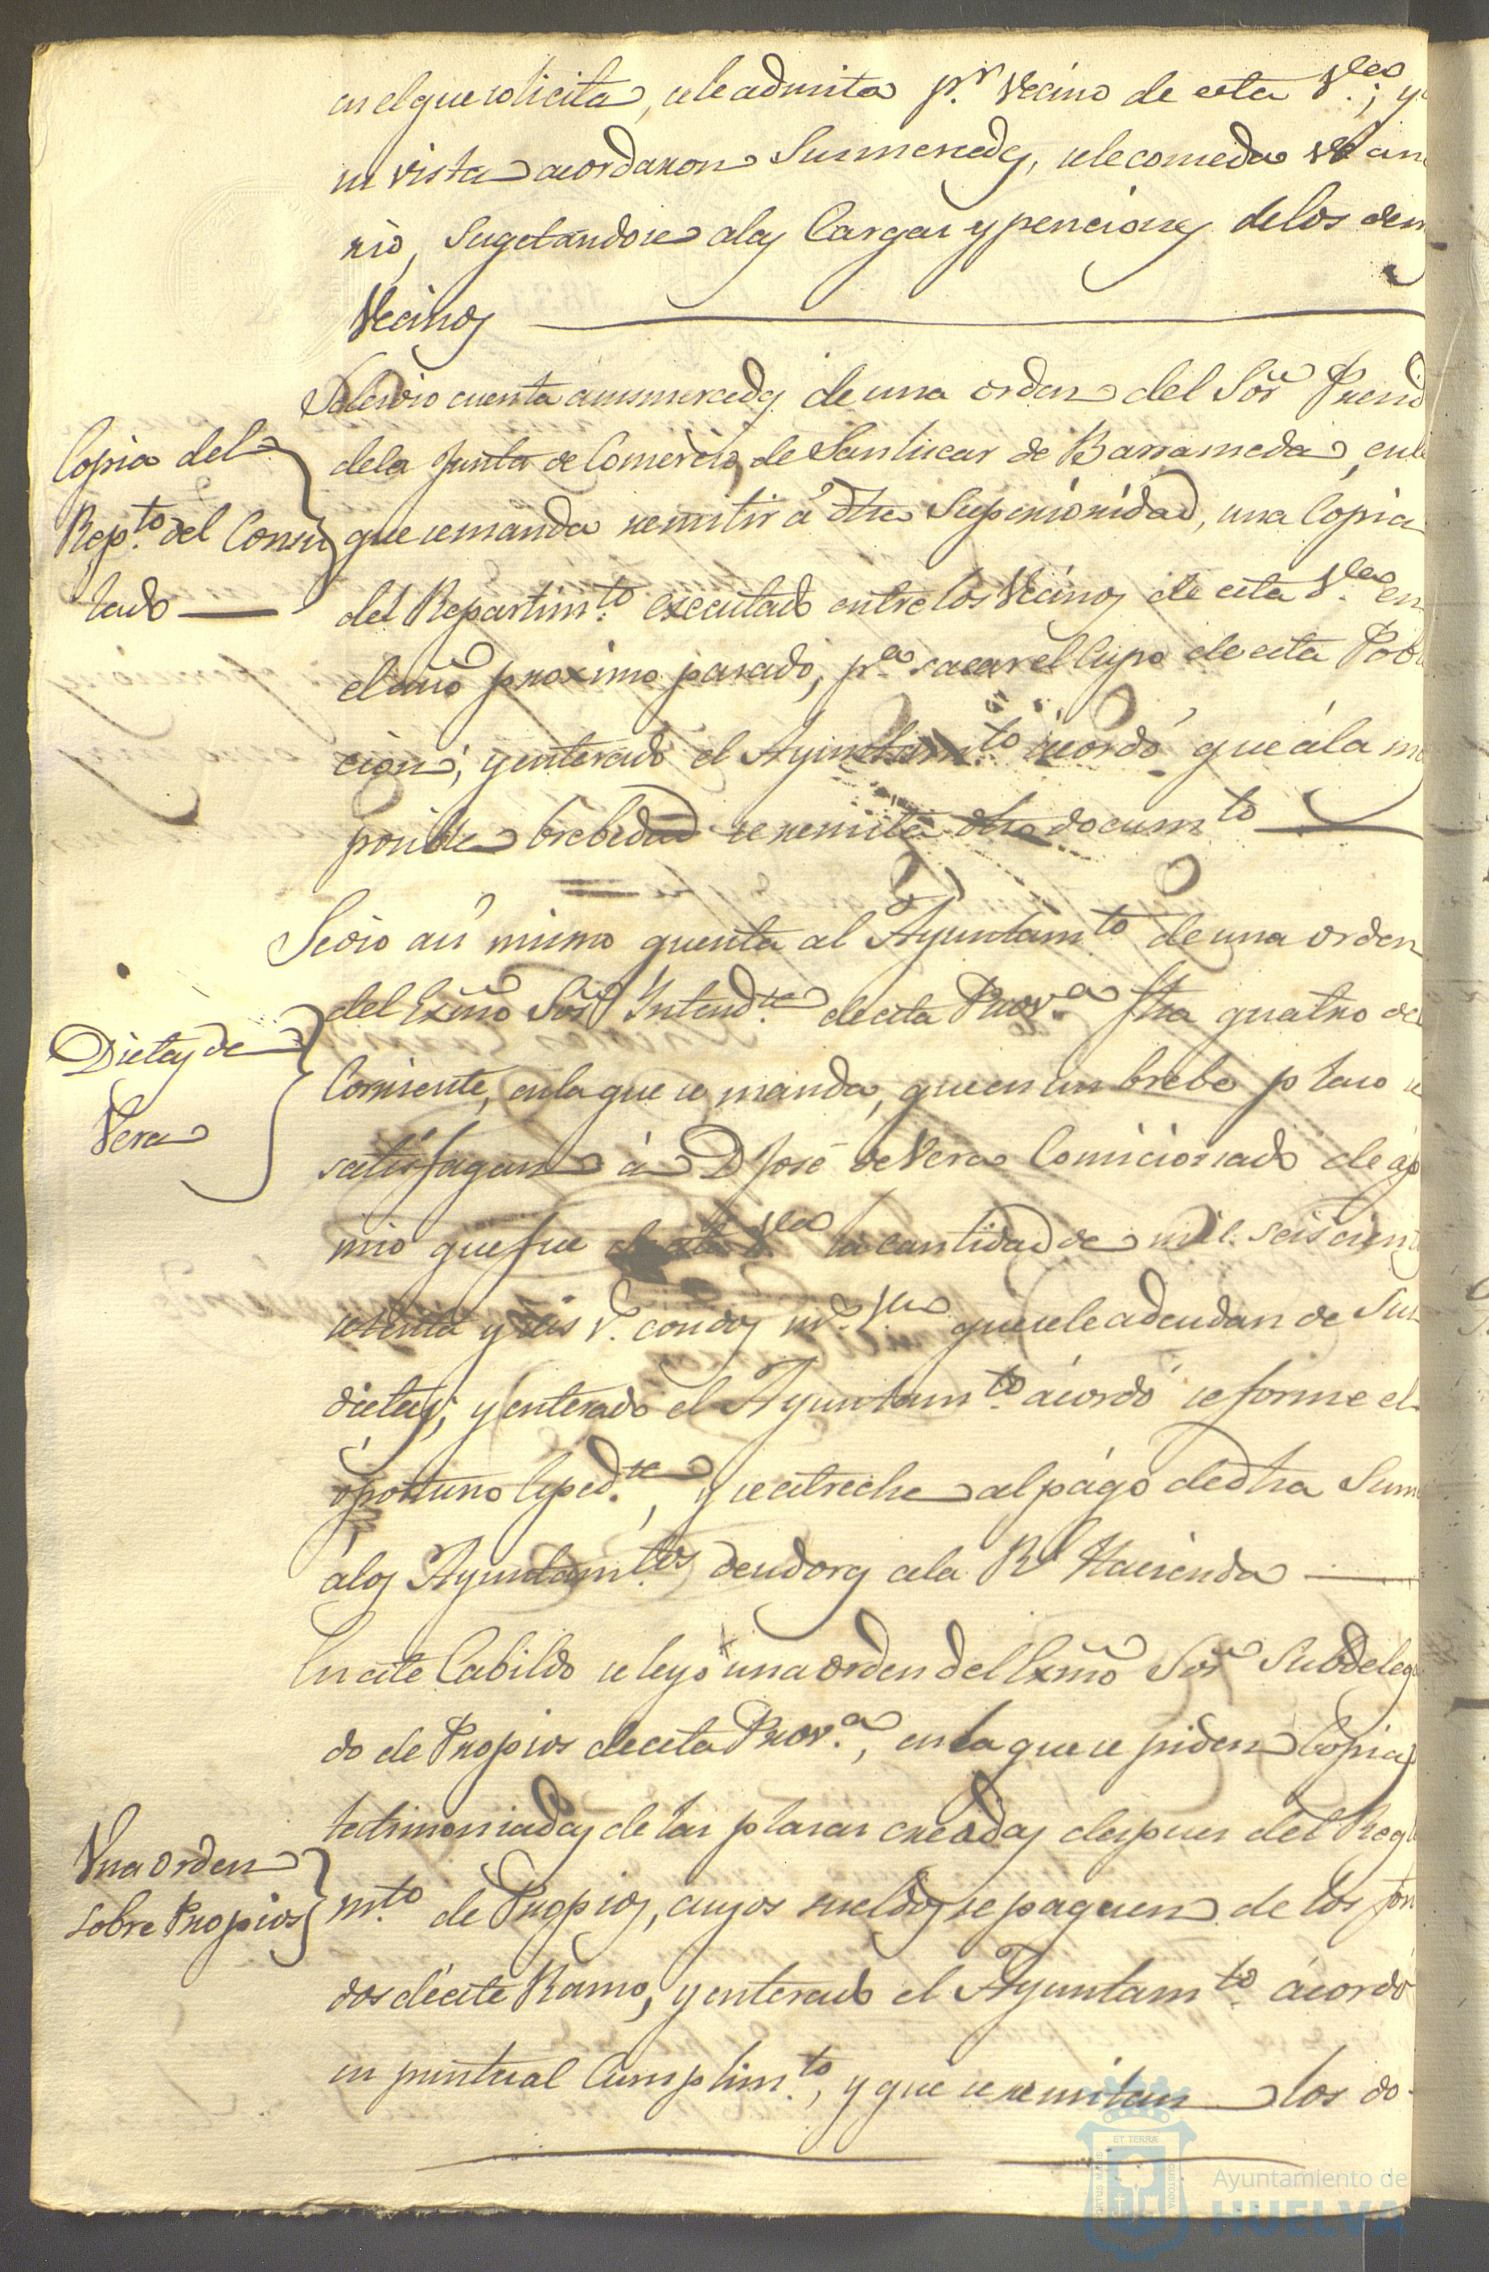 en el que solicita, se le admita p.r Vecino de esta V.lla; y
su vista acordaron Sus mercedes, se le conceda Vecin
rio, Sugetandose a las Cargas y penciones de los dem
Vecinos
Se le dio cuenta a sus mercedes de una orden del Sor Presid
Copia del
Rep.to del Consu
lado
de la Junta de Comercio, de Sanlucar de Barrameda, en la
que se manda remitir á dha Superioridad, una Copia
del Repartim.to executado entre los Vecinos de esta V.lla en
el año proximo pasado, p.a sacar el Cupo de esta Pobla
cion; y enterado el Ayuntam.to acordó que á la m
posible brebedad se remita dho docum.to
Se dio asi mismo quenta al Ayuntam.to de una orden
del Exmo Sor Intend.te de esta Prov.a fha quatro de
Dietas de
Vera
Corriente, en la que se manda, que en un brebe plaso se
satisfagan á D José de Vera Comicionado de ap
mio que fue de esta V.lla la cantidad de mil seiscient
setenta y seis r.s con dos mrs. Vn que se le adeudan de Sus
dietas; y enterado el Ayuntam.to acordó se forme el
oportuno Exped.te, y se estreche al págo de dha Suma
á los Ayuntam.tos deudores a la Rl Hacienda
En este Cabildo se leyo una orden del Exmo Sor Subdelega
do de Propios de esta Prov.a, en la que se piden Copias
testimoniadas de las plasas creadas despues del Regla
Una orden
sobre Propios
m.to de Propios, cuyos sueldos se paguen de los fon
dos de este Ramo, y enterado el Ayuntam.to acordó
su puntual Cumplim.to, y que se remitan los do-
ET TERRÆ
Ayuntamiento de
HUELVA